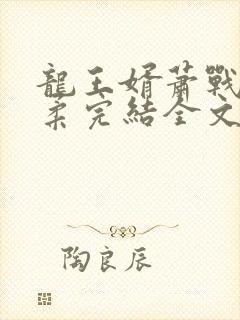 龍王婿蕭戰
柔完結全文
陶良辰